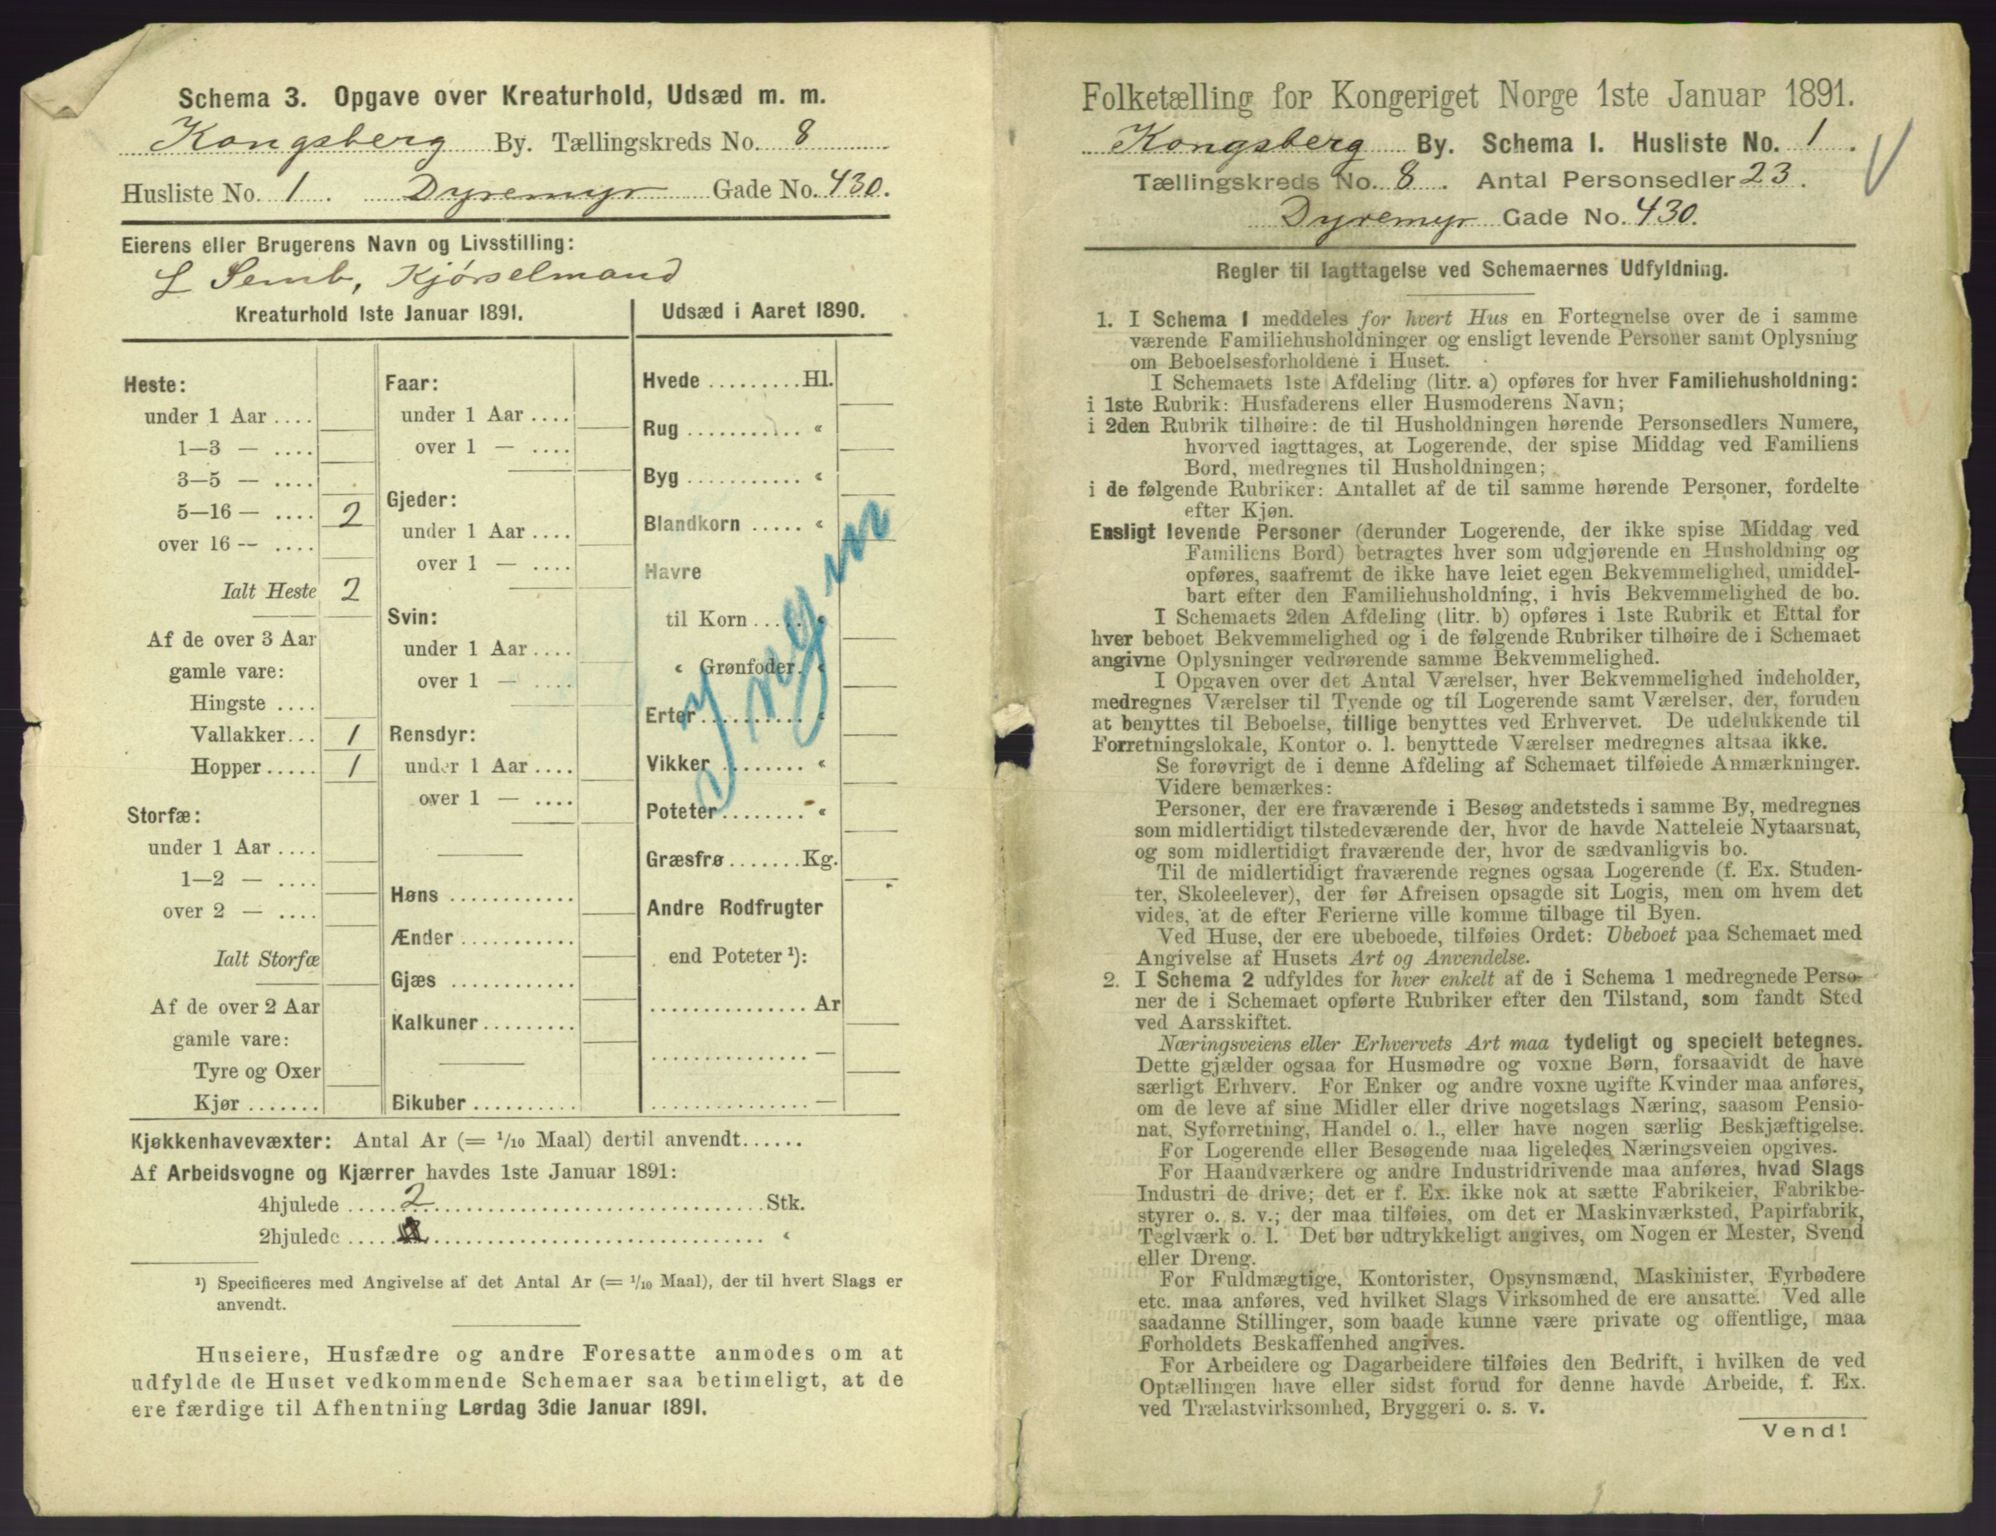 Schema 3. Opgave over Kreaturhold, Udsæd m. m.
Kongsberg By. Tællingskreds No. 8
Husliste No. 1. Dyremyr Gade No. 430.
Eierens eller Brugerens Navn og Livsstilling:
L Semb, Kjørselmand
Kreaturhold 1ste Januar 1891.
Heste:
under 1 Aar ....
1—3 — ....
3—5 — ....
5—16 — .... 2
over 16 — ....
Ialt Heste 2
Af de over 3 Aar
gamle vare:
Hingste ....
Vallakker... 1
Hopper..... 1
Storfæ:
under 1 Aar ....
1—2 — ....
over 2 — ....
Ialt Storfæ
Af de over 2 Aar
gamle vare:
Tyre og Oxer
Kjør .......
Faar:
under 1 Aar ....
over 1 — ....
Gjeder:
under 1 Aar ....
over 1 — ....
Svin:
under 1 Aar ....
over 1 — ....
Rensdyr:
under 1 Aar ....
over 1 — ....
Høns ............
Ænder ...........
Gjæs ............
Kalkuner.........
Bikuber ..........
Udsæd i Aaret 1890.
Hvede .........Hl.
Rug ........... «
Byg ........... «
Blandkorn ..... «
Havre
til Korn ..... «
« Grønfoder. «
Erter.......... «
Vikker ........ «
Poteter........ «
Græsfrø .......Kg.
Andre Rodfrugter
end Poteter ¹):
............... Ar
............... —
............... —
Kjøkkenhavevæxter: Antal Ar (= 1/10 Maal) dertil anvendt......
Af Arbeidsvogne og Kjærrer havdes 1ste Januar 1891:
4hjulede ..... 2 ..... Stk.
2hjulede ..... «
¹) Specificeres med Angivelse af det Antal Ar (= 1/10 Maal), der til hvert Slags er
anvendt.
Huseiere, Husfædre og andre Foresatte anmodes om at
udfylde de Huset vedkommende Schemaer saa betimeligt, at de
ere færdige til Afhentning Lørdag 3die Januar 1891.
Folketælling for Kongeriget Norge 1ste Januar 1891.
Kongsberg By. Schema I. Husliste No. 1.
Tællingskreds No. 8. Antal Personsedler 23.
Dyremyr Gade No. 430.
Regler til Iagttagelse ved Schemaernes Udfyldning.
1. I Schema 1 meddeles for hvert Hus en Fortegnelse over de i samme
værende Familiehusholdninger og ensligt levende Personer samt Oplysning
om Beboelsesforholdene i Huset.
I Schemaets 1ste Afdeling (litr. a) opføres for hver Familiehusholdning:
i 1ste Rubrik: Husfaderens eller Husmoderens Navn;
i 2den Rubrik tilhøire: de til Husholdningen hørende Personsedlers Numere,
hvorved iagttages, at Logerende, der spise Middag ved Familiens
Bord, medregnes til Husholdningen;
i de følgende Rubriker: Antallet af de til samme hørende Personer, fordelte
efter Kjøn.
Ensligt levende Personer (derunder Logerende, der ikke spise Middag ved
Familiens Bord) betragtes hver som udgjørende en Husholdning og
opføres, saafremt de ikke have leiet egen Bekvemmelighed, umiddel-
bart efter den Familiehusholdning, i hvis Bekvemmelighed de bo.
I Schemaets 2den Afdeling (litr. b) opføres i 1ste Rubrik et Ettal for
hver beboet Bekvemmelighed og i de følgende Rubriker tilhøire de i Schemaet
angivne Oplysninger vedrørende samme Bekvemmelighed.
I Opgaven over det Antal Værelser, hver Bekvemmelighed indeholder,
medregnes Værelser til Tyende og til Logerende samt Værelser, der, foruden
at benyttes til Beboelse, tillige benyttes ved Erhvervet. De udelukkende til
Forretningslokale, Kontor o. l. benyttede Værelser medregnes altsaa ikke.
Se forøvrigt de i denne Afdeling af Schemaet tilføiede Anmærkninger.
Videre bemærkes:
Personer, der ere fraværende i Besøg andetsteds i samme By, medregnes
som midlertidigt tilstedeværende der, hvor de havde Natteleie Nytaarsnat,
og som midlertidigt fraværende der, hvor de sædvanligvis bo.
Til de midlertidigt fraværende regnes ogsaa Logerende (f. Ex. Studen-
ter, Skoleelever), der før Afreisen opsagde sit Logis, men om hvem det
vides, at de efter Ferierne ville komme tilbage til Byen.
Ved Huse, der ere ubeboede, tilføies Ordet: Ubeboet paa Schemaet med
Angivelse af Husets Art og Anvendelse.
2. I Schema 2 udfyldes for hver enkelt af de i Schema 1 medregnede Perso-
ner de i Schemaet opførte Rubriker efter den Tilstand, som fandt Sted
ved Aarsskiftet.
Næringsveiens eller Erhvervets Art maa tydeligt og specielt betegnes.
Dette gjælder ogsaa for Husmødre og voxne Børn, forsaavidt de have
særligt Erhverv. For Enker og andre voxne ugifte Kvinder maa anføres,
om de leve af sine Midler eller drive nogetslags Næring, saasom Pensio-
nat, Syforretning, Handel o. l., eller have nogen særlig Beskjæftigelse.
For Logerende eller Besøgende maa ligeledes Næringsveien opgives.
For Haandværkere og andre Industridrivende maa anføres, hvad Slags
Industri de drive; det er f. Ex. ikke nok at sætte Fabrikeier, Fabrikbe-
styrer o. s. v.; der maa tilføies, om det er Maskinværksted, Papirfabrik,
Teglværk o. l. Det bør udtrykkeligt angives, om Nogen er Mester, Svend
eller Dreng.
For Fuldmægtige, Kontorister, Opsynsmænd, Maskinister, Fyrbødere
etc. maa anføres, ved hvilket Slags Virksomhed de ere ansatte. Ved alle
saadanne Stillinger, som baade kunne være private og offentlige, maa
Forholdets Beskaffenhed angives.
For Arbeidere og Dagarbeidere tilføies den Bedrift, i hvilken de ved
Optællingen have eller sidst forud for denne havde Arbeide, f. Ex.
ved Trælastvirksomhed, Bryggeri o. s. v.
Vend!